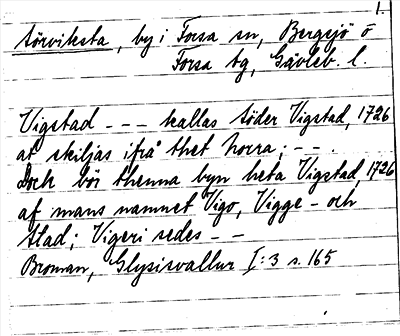 1.
Sörviksta, by i Forsa sn, Bergsjö o
Forsa tg, Gävleb. l.
Vigstad --- kallas söder Vigstad, 1726
at skiljas ifrå thet norra; --.
Dock bör thenna byn heta Vigstad, 1726
af mans namnet Vigo, Vigge - och
stad; Vigeri sedes --
Broman, Glysisvallur I:3 s. 165